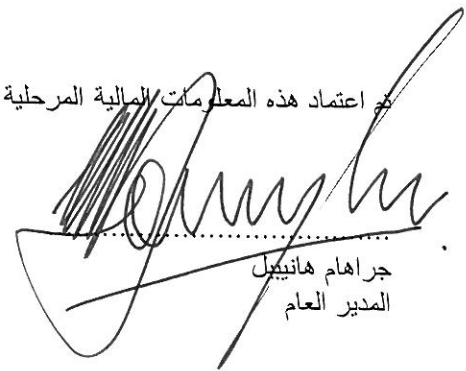 تم اعتماد هذه المعلومات المالية المرحلية
........................................
جراهام هانيبيل
المدير العام